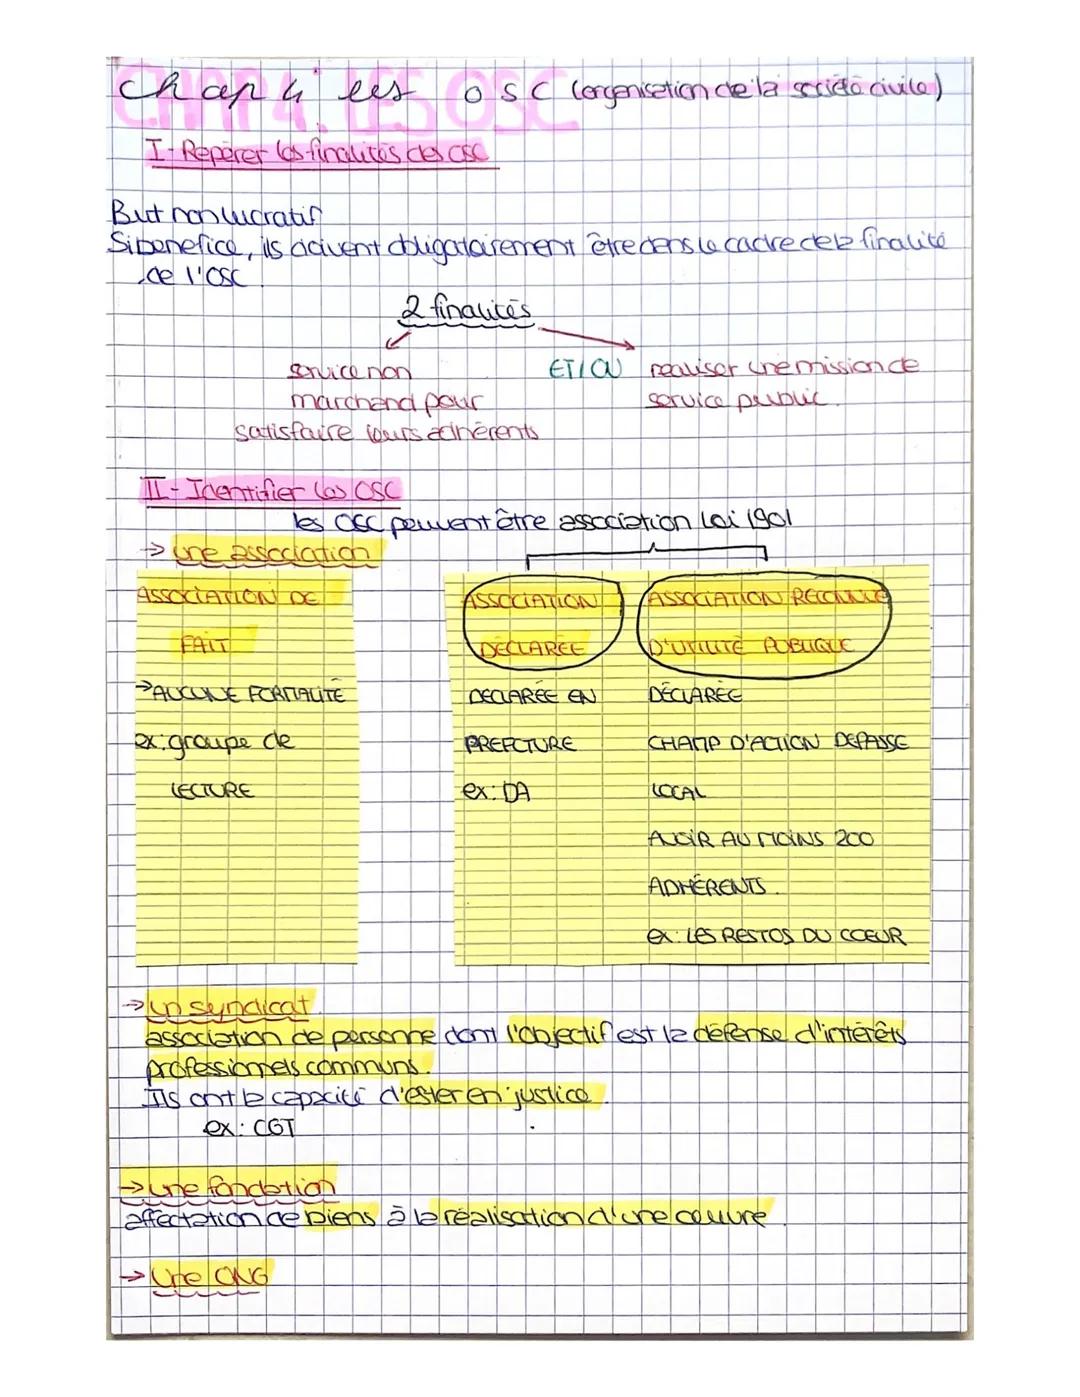 chap 4 les OSC (organisation de la société civile)
CHAP 4: LES OSC
I- Repérer les finalités des OSC
But non lucratif
Si benefice, ils doivent obligatoirement être dans le cadre de la finalité
de l'OSC
2 finalités
service non
marchand pour
satisfaire leurs adhérents
ET/OU
réaliser une mission de
service public.
II- Identifier les OSC
les OSC peuvent être association Loi 1901
→ une association
ASSOCIATION DE
FAIT
→AUCUNE FORMALITÉ
ex: groupe de
LECTURE
ASSOCIATION
DÉCLARÉE
DECLARÉE EN
PREFCTURE
ex: DA
ASSOCIATION RECONNUE
D'UTILITÉ PUBLIQUE
DÉCLARÉE
CHAMP D'ACTION DEPASSE
LOCAL
AVOIR AU MOINS 200
ADHÉRENTS.
ex: LES RESTOS DU COEUR
→ un syndicat.
association de personne dont l'objectif est la défense d'intérêts
professionnels communs.
Ils ont la capacité d'ester en justice.
ex: CGT
→ une fondation
affectation de biens à la réalisation d'une oeuvre.
→ Une ONG